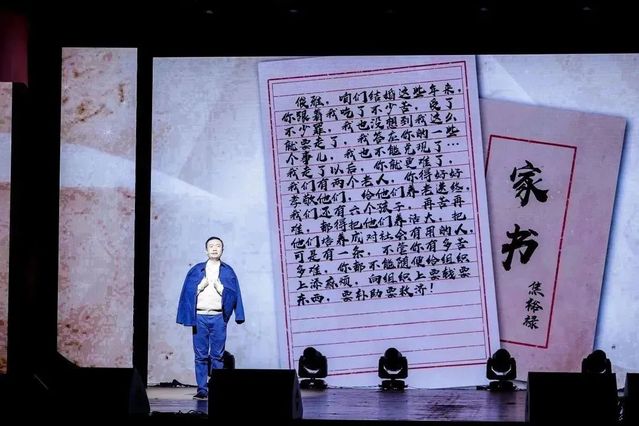 俊雅，咱们结婚这些年来，
你跟着我吃了不少苦，受了
不少罪，我也没想到我这么
就要走了，我答应你的一些
个事儿，我也不能兑现了…
我走了以后，你就更难了，
我们有两个老人，你得好好
孝敬他们，给他们养老送终，
我们还有六个孩子，再苦再
难，都得把他们养活大，把
他们培养成对社会有用的人，
可是有一条，不管你有多苦
多难，你都不能随便给组织
上添麻烦，向组织上要钱要
东西，要补助要救济！
家书
焦裕禄